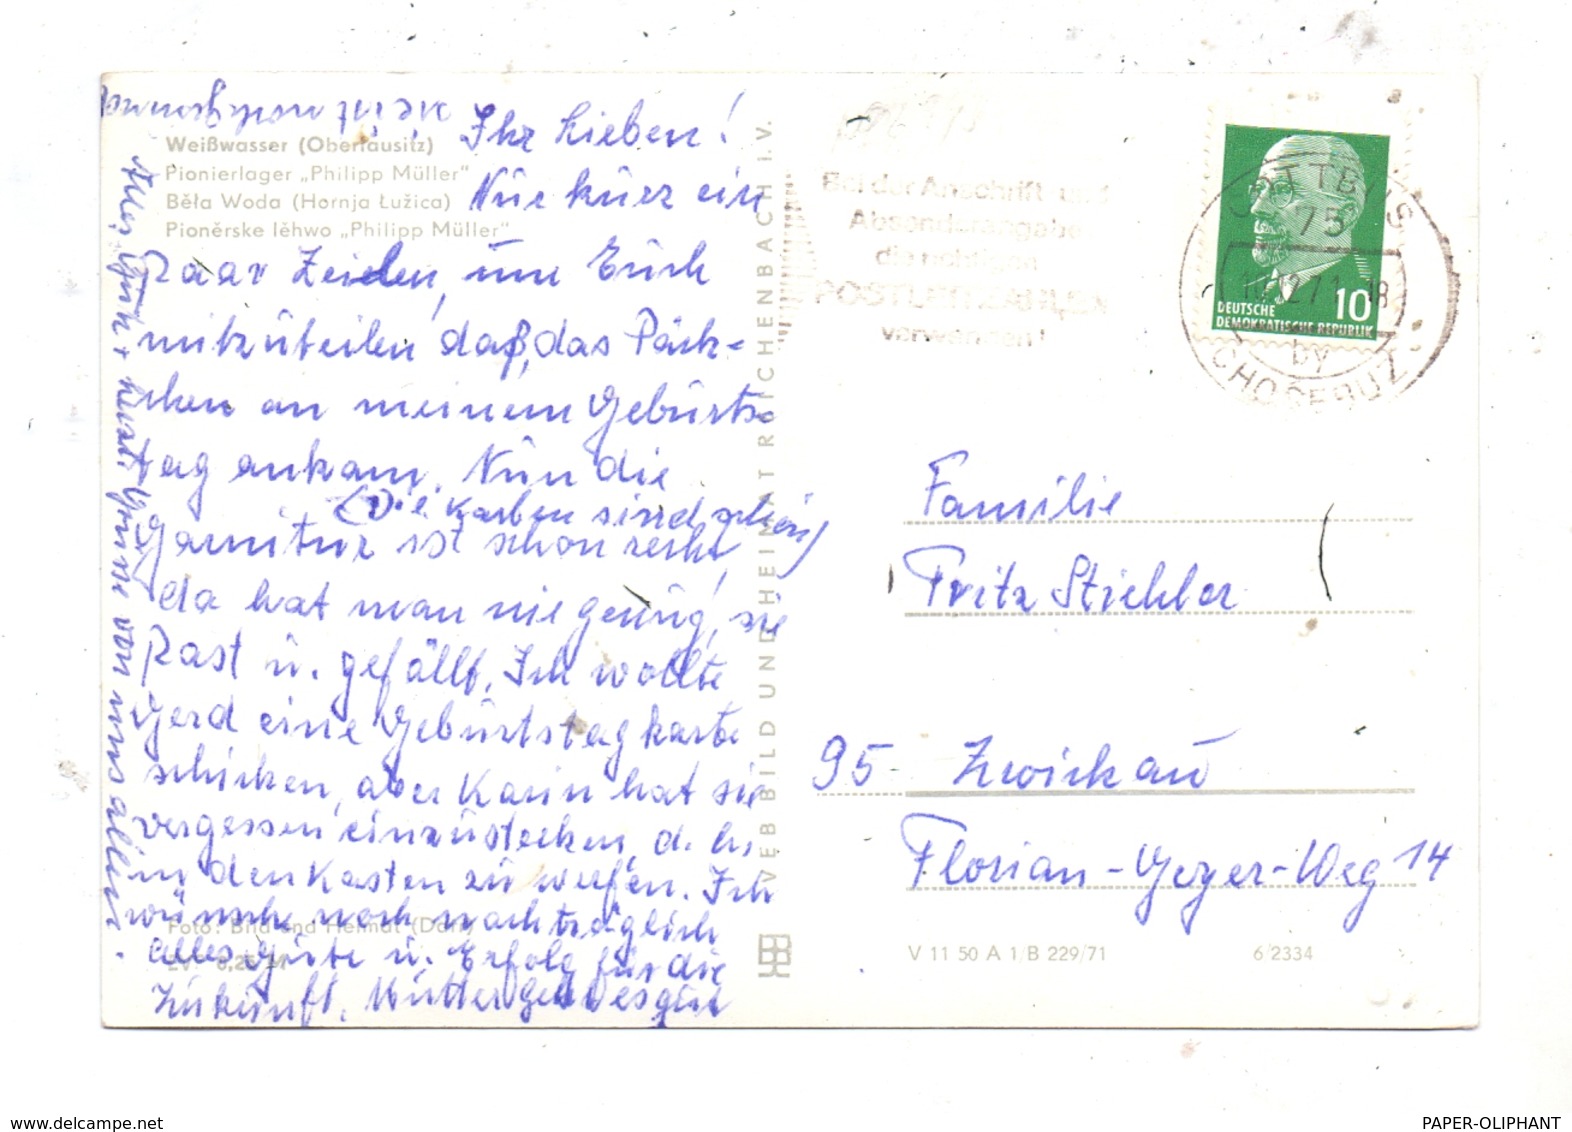 Weißwasser (Oberlausitz)
Pionierlager „Philipp Müller"
Běła Woda (Hornja Łužica)
Pioněrske lěhwo „Philipp Müller"
Ihr Lieben!
Nur kurz ein
paar Zeilen, um Euch
mitzuteilen, daß das Päck-
chen an meinem Geburts-
tag ankam. Nun die
(Die Farben sind schön)
Garnitur ist schon recht,
da hat man nie genug, sie
passt u. gefällt. Ich wollte
Gerd eine Geburtstagkarte
schicken, aber Karin hat sie
vergessen einzustecken, d. h.
in den Kasten zu werfen. Ich
wünsche noch nachträglich
alles Gute u. Erfolg für die
Zukunft. Mutter geht es gut
Alles Gute + herzl. Grüsse von uns allen.
Foto: Bild und Heimat
VEB BILD UND HEIMAT REICHENBACH I. V.
Bei der Anschrift und
Absenderangabe
die richtigen
POSTLEITZAHLEN
verwenden!
COTTBUS
75
by
CHOŚEBUZ
DEUTSCHE
DEMOKRATISCHE REPUBLIK
10
Familie
Fritz Stiehler
95 - Zwickau
Florian-Geyer-Weg 14
V 11 50 A 1/B 229/71
6/2334
www.delcampe.net
PAPER-OLIPHANT